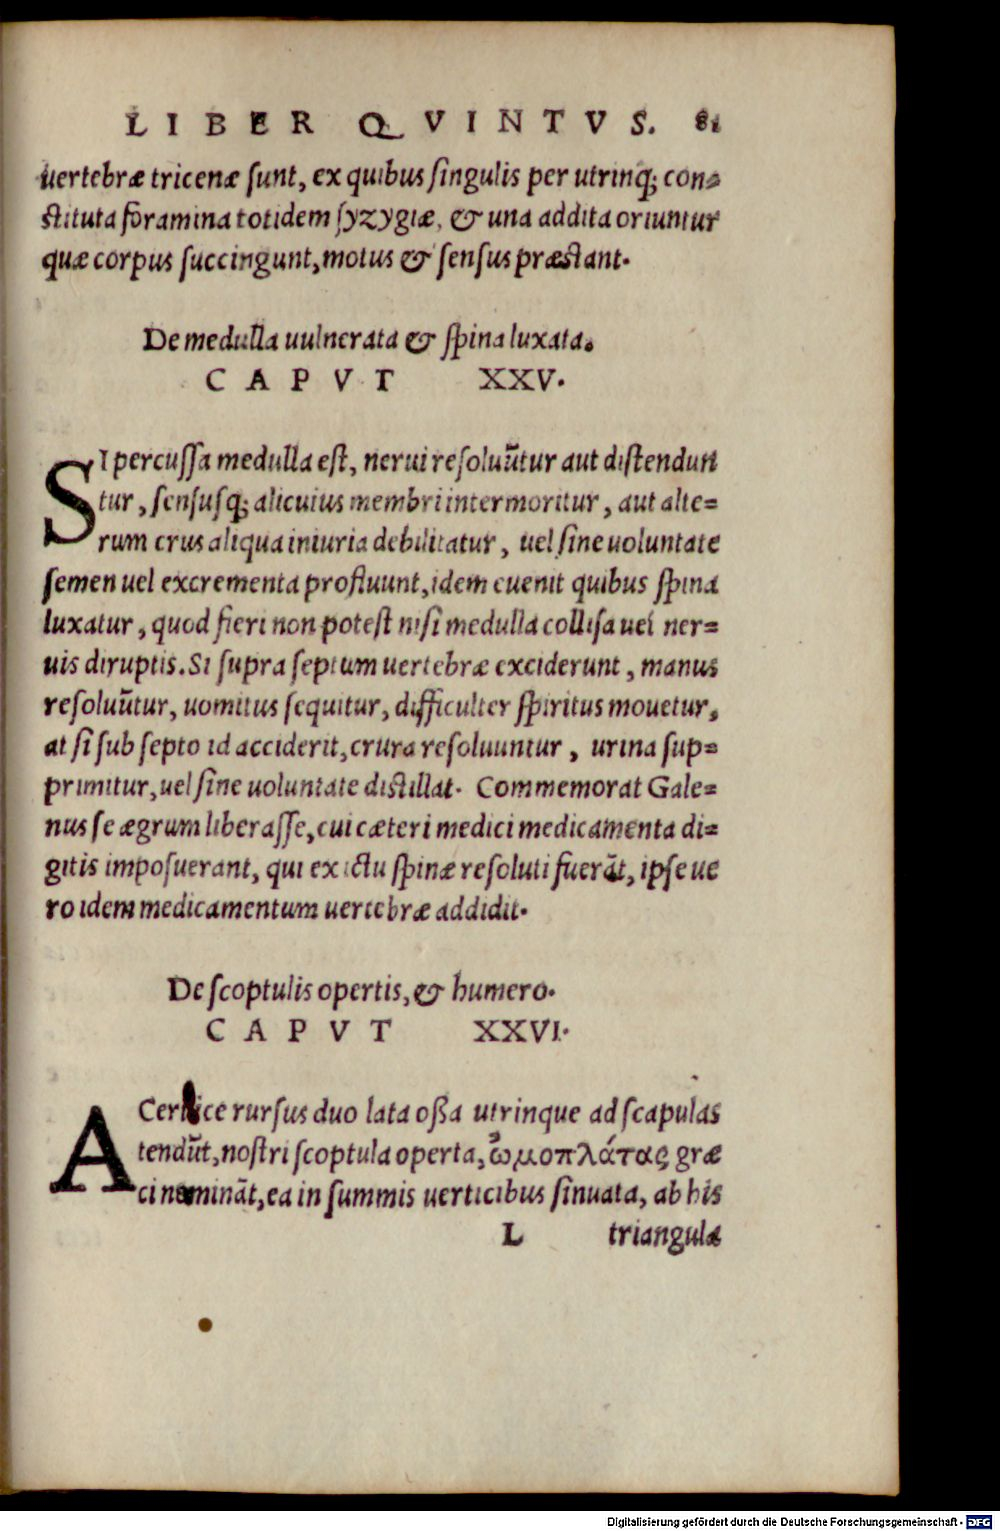 LIBER QVINTVS. 81
uertebræ tricenæ sunt, ex quibus singulis per utrinq; con=
stituta foramina totidem syzygiæ, & una addita oriuntur
quæ corpus succingunt, motus & sensus præstant.
De medulla uulnerata & spina luxata.
CAPVT XXV.
SI percussa medulla est, nerui resoluūtur aut distendun
tur, sensusq; alicuius membri intermoritur, aut alte=
rum crus aliqua iniuria debilitatur, uel sine uoluntate
semen uel excrementa profluunt, idem euenit quibus spina
luxatur, quod fieri non potest nisi medulla collisa uel ner=
uis diruptis. Si supra septum uertebræ exciderunt, manus
resoluūtur, uomitus sequitur, difficulter spiritus mouetur,
at si sub septo id acciderit, crura resoluuntur, urina sup=
primitur, uel sine uoluntate distillat. Commemorat Gale=
nus se ægrum liberasse, cui cæteri medici medicamenta di=
gitis imposuerant, qui ex ictu spinæ resoluti fuerāt, ipse ue
ro idem medicamentum uertebræ addidit.
De scoptulis opertis, & humero.
CAPVT XXVI.
A Ceruice rursus duo lata ossa utrinque ad scapulas
tendūt, nostri scoptula operta, ὠμοπλάτας græ
ci nomināt, ea in summis uerticibus sinuata, ab his
L triangula
Digitalisierung gefördert durch die Deutsche Forschungsgemeinschaft - DFG